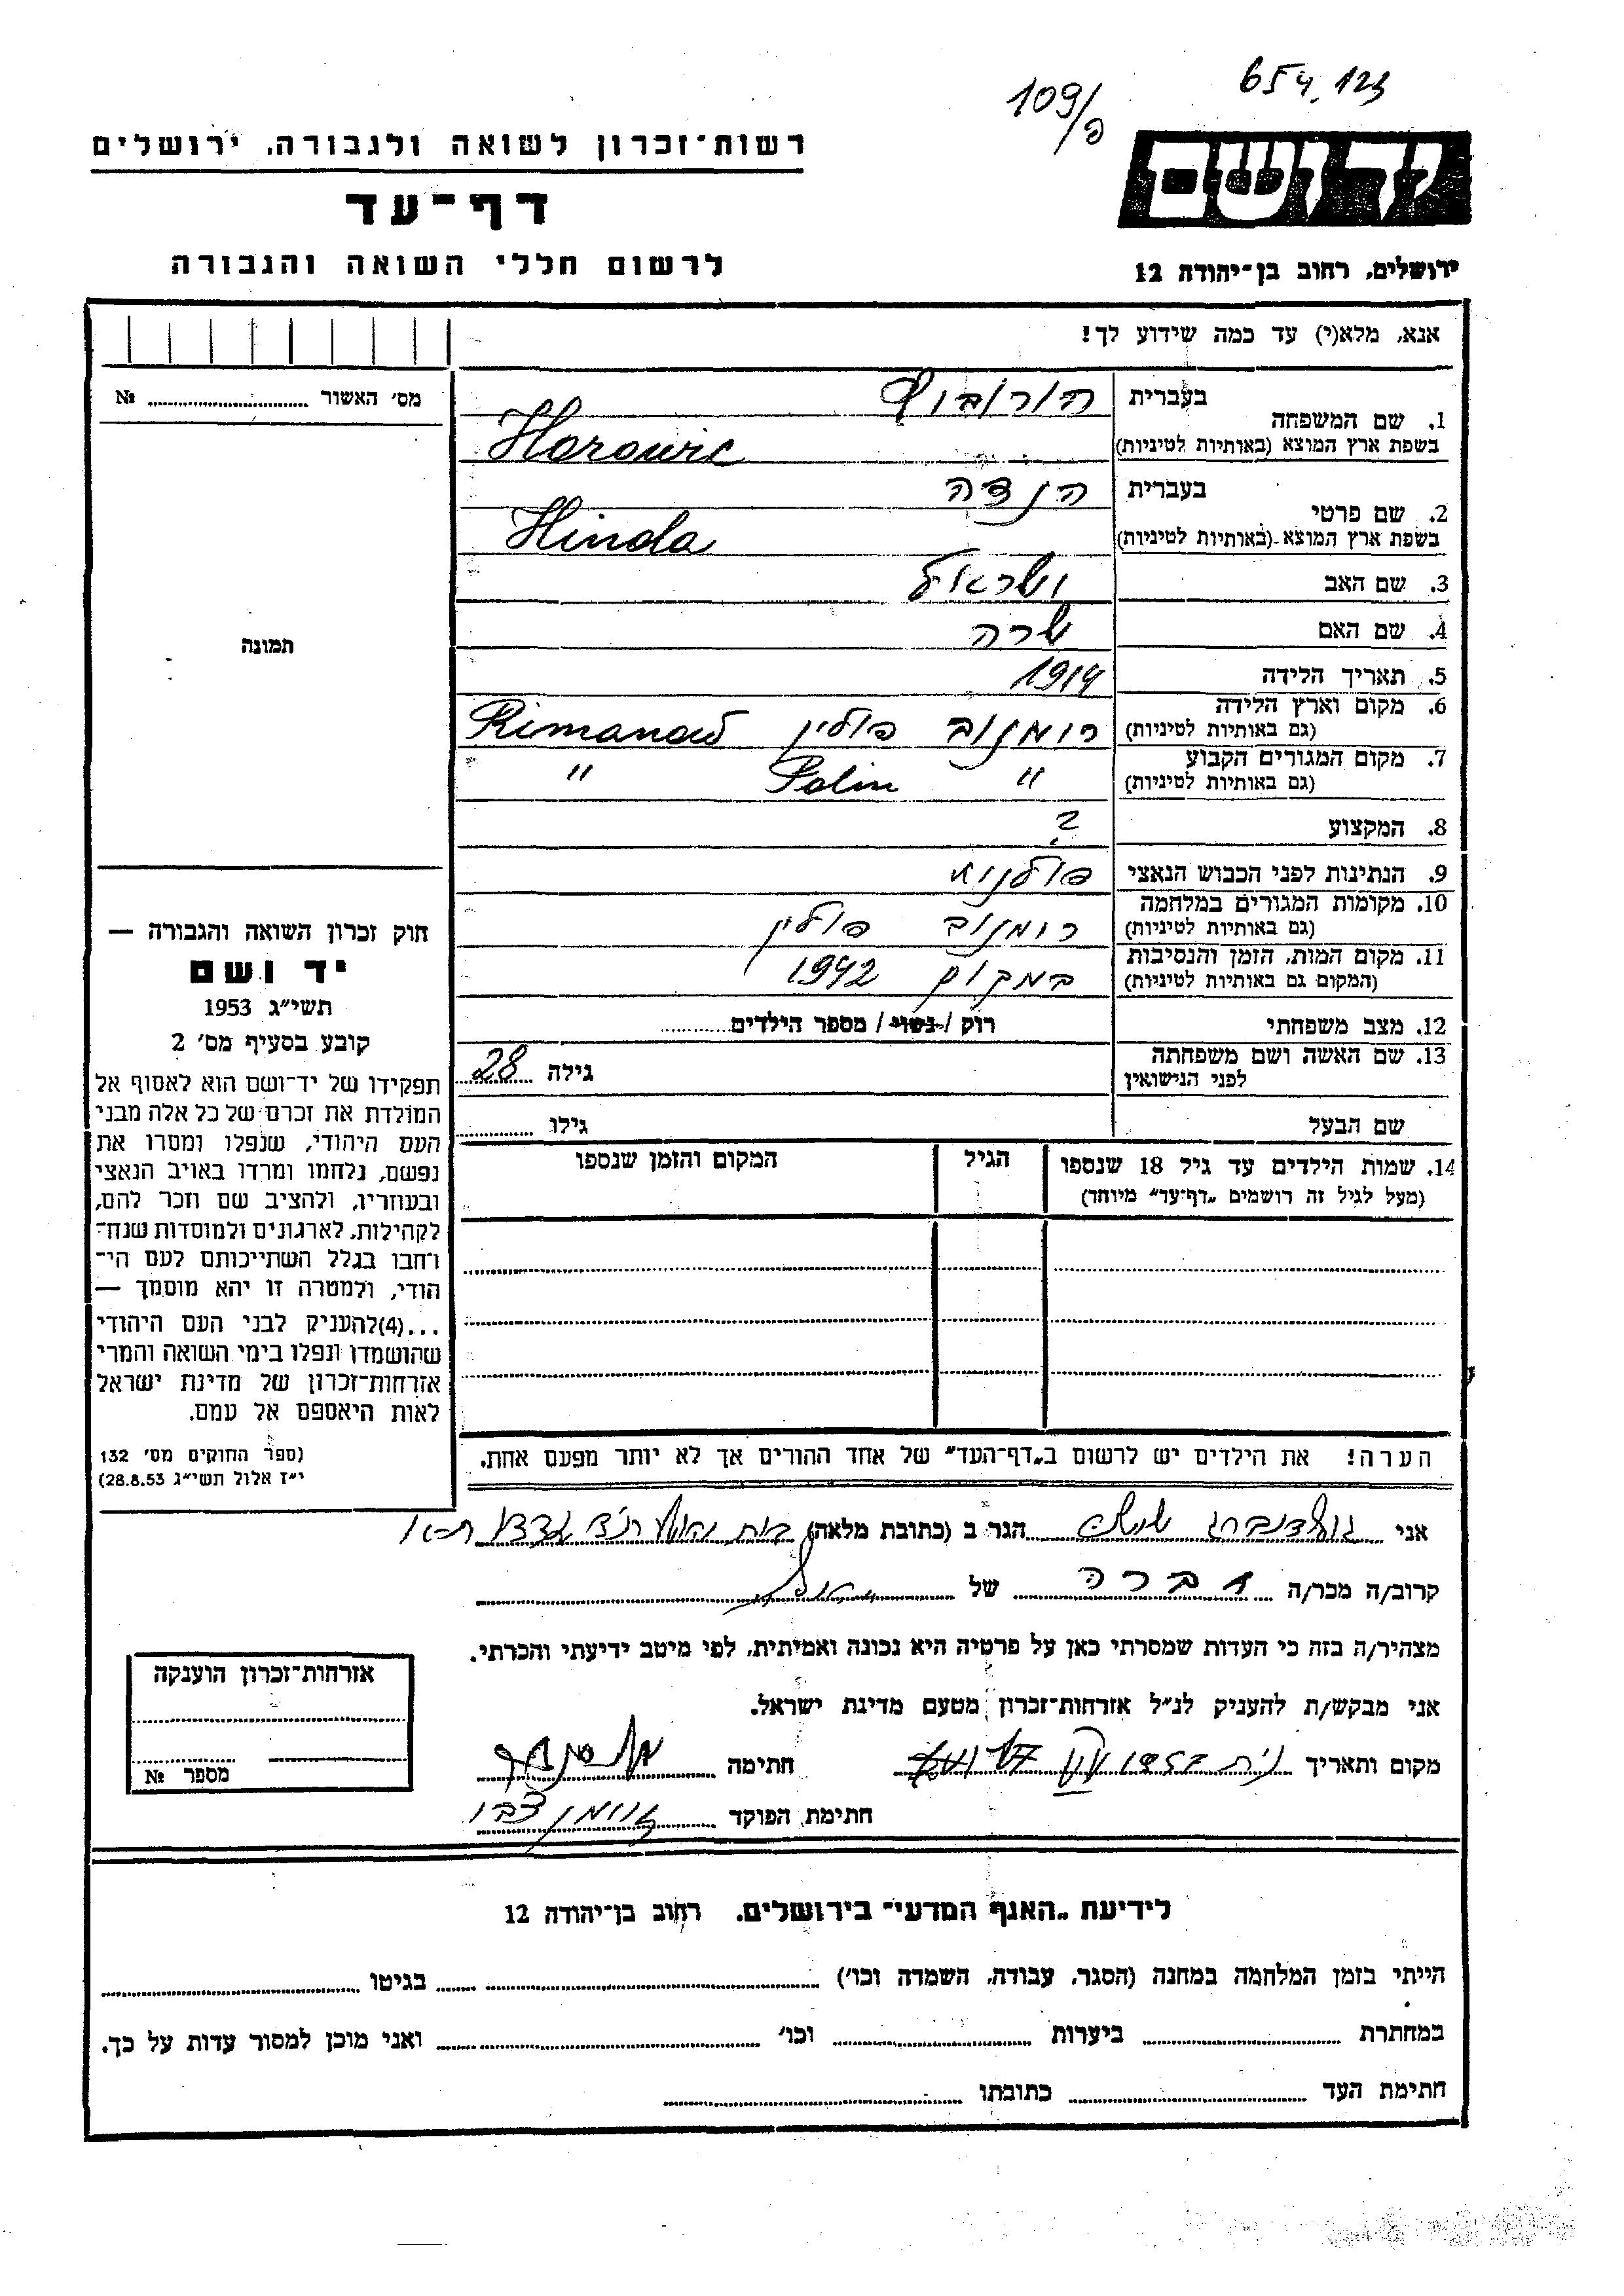 654.123
109/פ
רשות-זכרון לשואה ולגבורה, ירושלים
יד ושם
דף-עד
לרשום חללי השואה והגבורה
ירושלים, רחוב בן-יהודה 12
אנא, מלא(י) עד כמה שידוע לך!
מס' האשור № 
1. שם המשפחה בעברית הורוביץ
בשפת ארץ המוצא (באותיות לטיניות) Horowic
2. שם פרטי בעברית הנדה
בשפת ארץ המוצא (באותיות לטיניות) Hinda
3. שם האב ישראל
4. שם האם שרה
תמונה
5. תאריך הלידה 1914
6. מקום וארץ הלידה רימנוב פולין Rimanow
(גם באותיות לטיניות)
7. מקום המגורים הקבוע " Polin "
(גם באותיות לטיניות)
8. המקצוע ?
9. הנתינות לפני הכבוש הנאצי פולנית
10. מקומות המגורים במלחמה רימנוב פולין
(גם באותיות לטיניות)
11. מקום המות, הזמן והנסיבות במקום 1942
(המקום גם באותיות לטיניות)
12. מצב משפחתי רוק / נשוי / מספר הילדים
13. שם האשה ושם משפחתה גילה 28
לפני הנישואין
שם הבעל גילו
14. שמות הילדים עד גיל 18 שנספו הגיל המקום והזמן שנספו
(מעל לגיל זה רושמים „דף-עד" מיוחד)
חוק זכרון השואה והגבורה —
יד ושם
תשי"ג 1953
קובע בסעיף מס' 2
תפקידו של יד-ושם הוא לאסוף אל
המולדת את זכרם של כל אלה מבני
העם היהודי, שנפלו ומסרו את
נפשם, נלחמו ומרדו באויב הנאצי
ובעוזריו, ולהציב שם וזכר להם,
לקהילות, לארגונים ולמוסדות שנח-
רחבו בגלל השתייכותם לעם הי-
הודי, ולמטרה זו יהא מוסמך —
...(4) להעניק לבני העם היהודי
שהושמדו ונפלו בימי השואה והמרי
אזרחות-זכרון של מדינת ישראל
לאות היאספם אל עמם.
(ספר החוקים מס' 132
י"ז אלול תשי"ג 28.8.53)
הערה! את הילדים יש לרשום ב„דף-העד" של אחד ההורים אך לא יותר מפעם אחת.
אני גולדנברג הגר ב (כתובת מלאה)
קרוב/ה מכר/ה חברה של
מצהיר/ה בזה כי העדות שמסרתי כאן על פרטיה היא נכונה ואמיתית, לפי מיטב ידיעתי והכרתי.
אני מבקש/ת להעניק לנ"ל אזרחות-זכרון מטעם מדינת ישראל.
מקום ותאריך חתימה
חתימת הפוקד
אזרחות-זכרון הוענקה
מספר №
לידיעת „האגף המדעי" בירושלים, רחוב בן-יהודה 12
הייתי בזמן המלחמה במחנה (הסגר, עבודה, השמדה וכו') בגיטו
במחתרת ביערות וכו' ואני מוכן למסור עדות על כך.
חתימת העד כתובתו